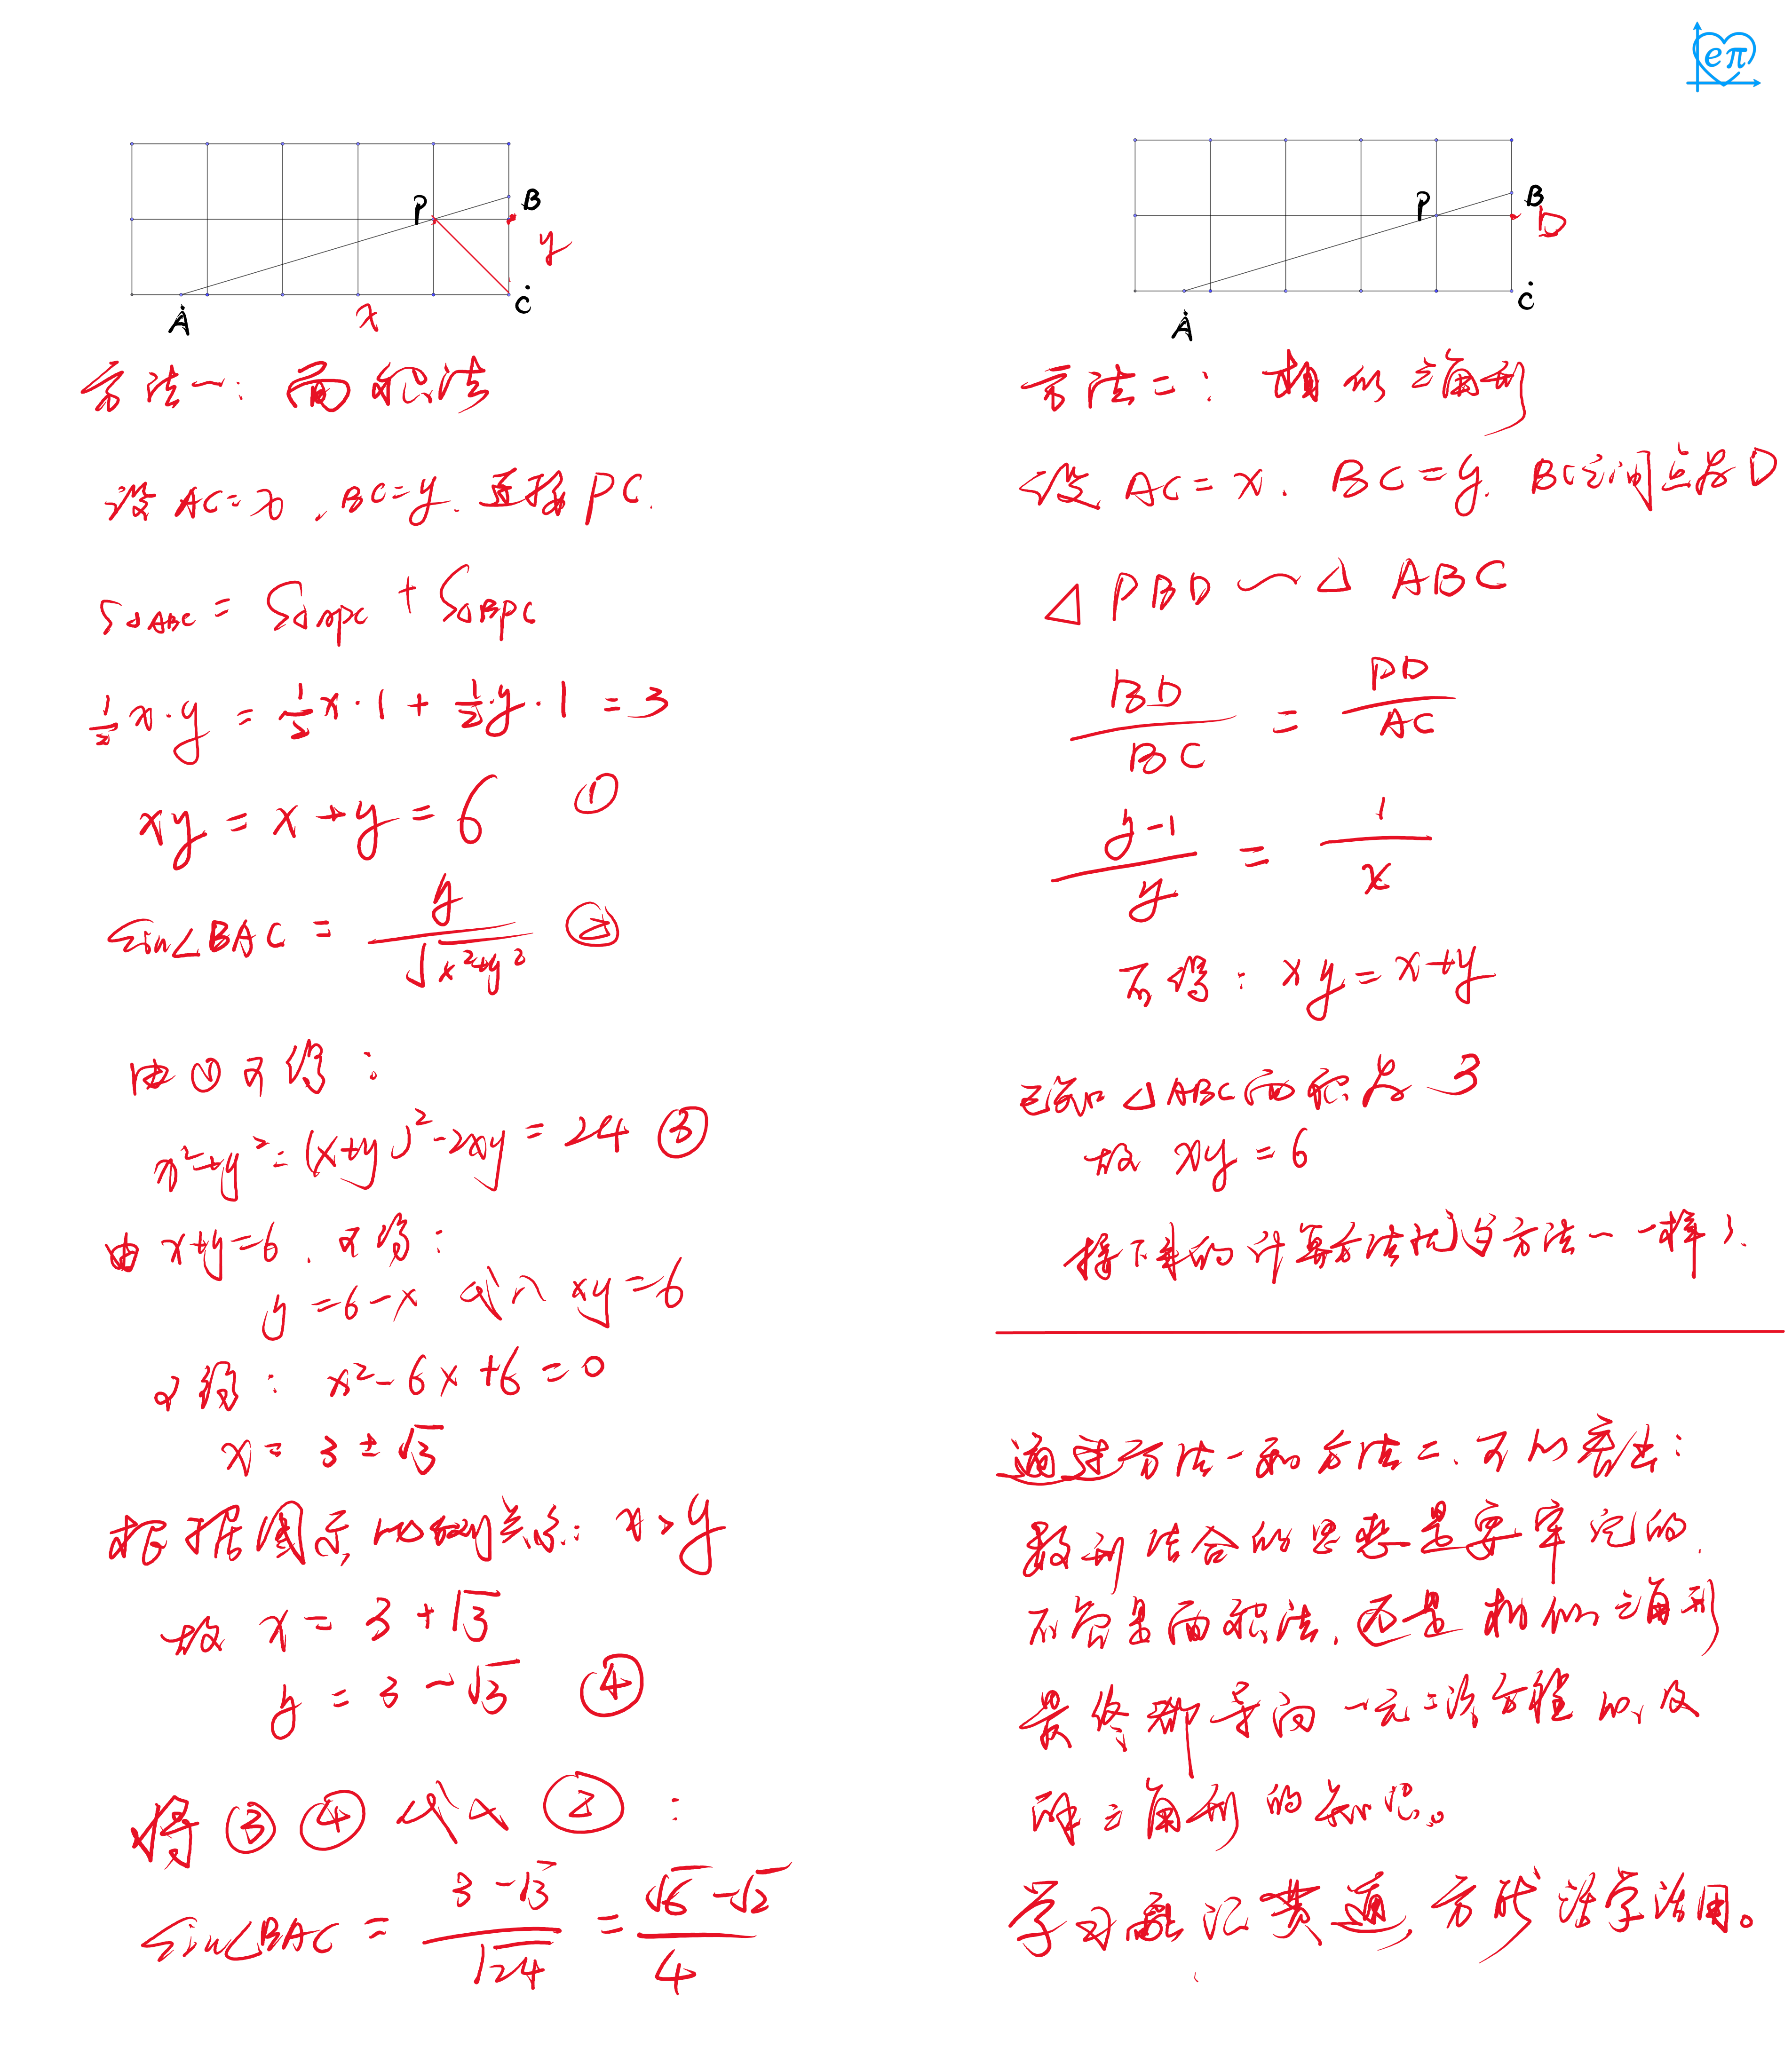 eπ
P
B
y
A
x
C
方法一：面积法
设 AC=x，BC=y. 连接 PC.
S△ABC = S△APC + S△BPC
½x·y = ½x·1 + ½y·1 = 3
xy = x+y = 6 ①
sin∠BAC = y/√(x²+y²) ②
由①可得：
x²+y² = (x+y)²-2xy = 24 ③
由 x+y=6，可得：
y=6-x 代入 xy=6
可得：x²-6x+6=0
x = 3±√3
根据图示比例关系：x>y
故 x = 3+√3
y = 3-√3 ④
将③④代入②：
sin∠BAC = (3-√3)/√24 = (√6-√2)/4
P
B
D
A
C
方法二：相似三角形
设 AC=x. BC=y. BC之间点为D
△PBD∽△ABC
BD/BC = PD/AC
(y-1)/y = 1/x
可得：xy=x+y
已知△ABC面积为3
故 xy=6
接下来的计算方法就与方法一一样了.
通过方法一和方法二、可以看出：
数形结合的思想是要牢记的.
不管是面积法，还是相似三角形
最终都导向一元二次方程以及
解三角形的知识。
学习融汇贯通，方能活学活用。